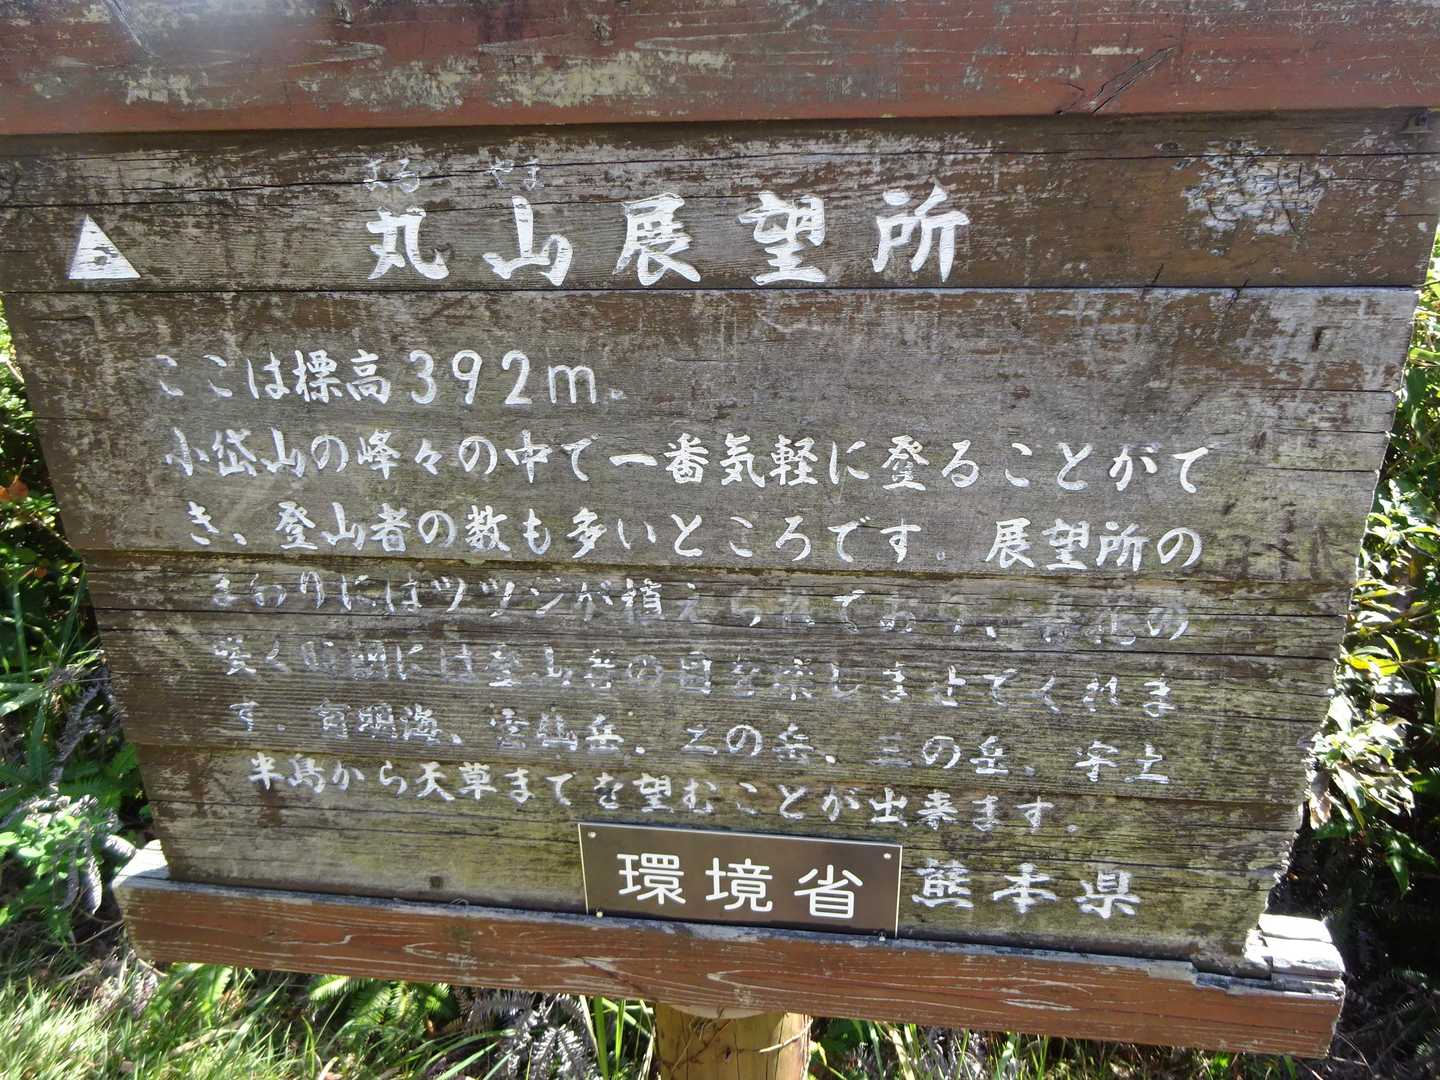 まる やま
丸山展望所
ここは標高392m。
小岱山の峰々の中で一番気軽に登ることがて
き、登山者の数も多いところです。展望所の
まわりにはツツジが植えられており、開花の
咲く時期には登山者の目を楽しませてくれま
す。有明海、雲仙岳、二の岳、三の岳、宇土
半島から天草まてを望むことが出来ます。
環境省 熊本県